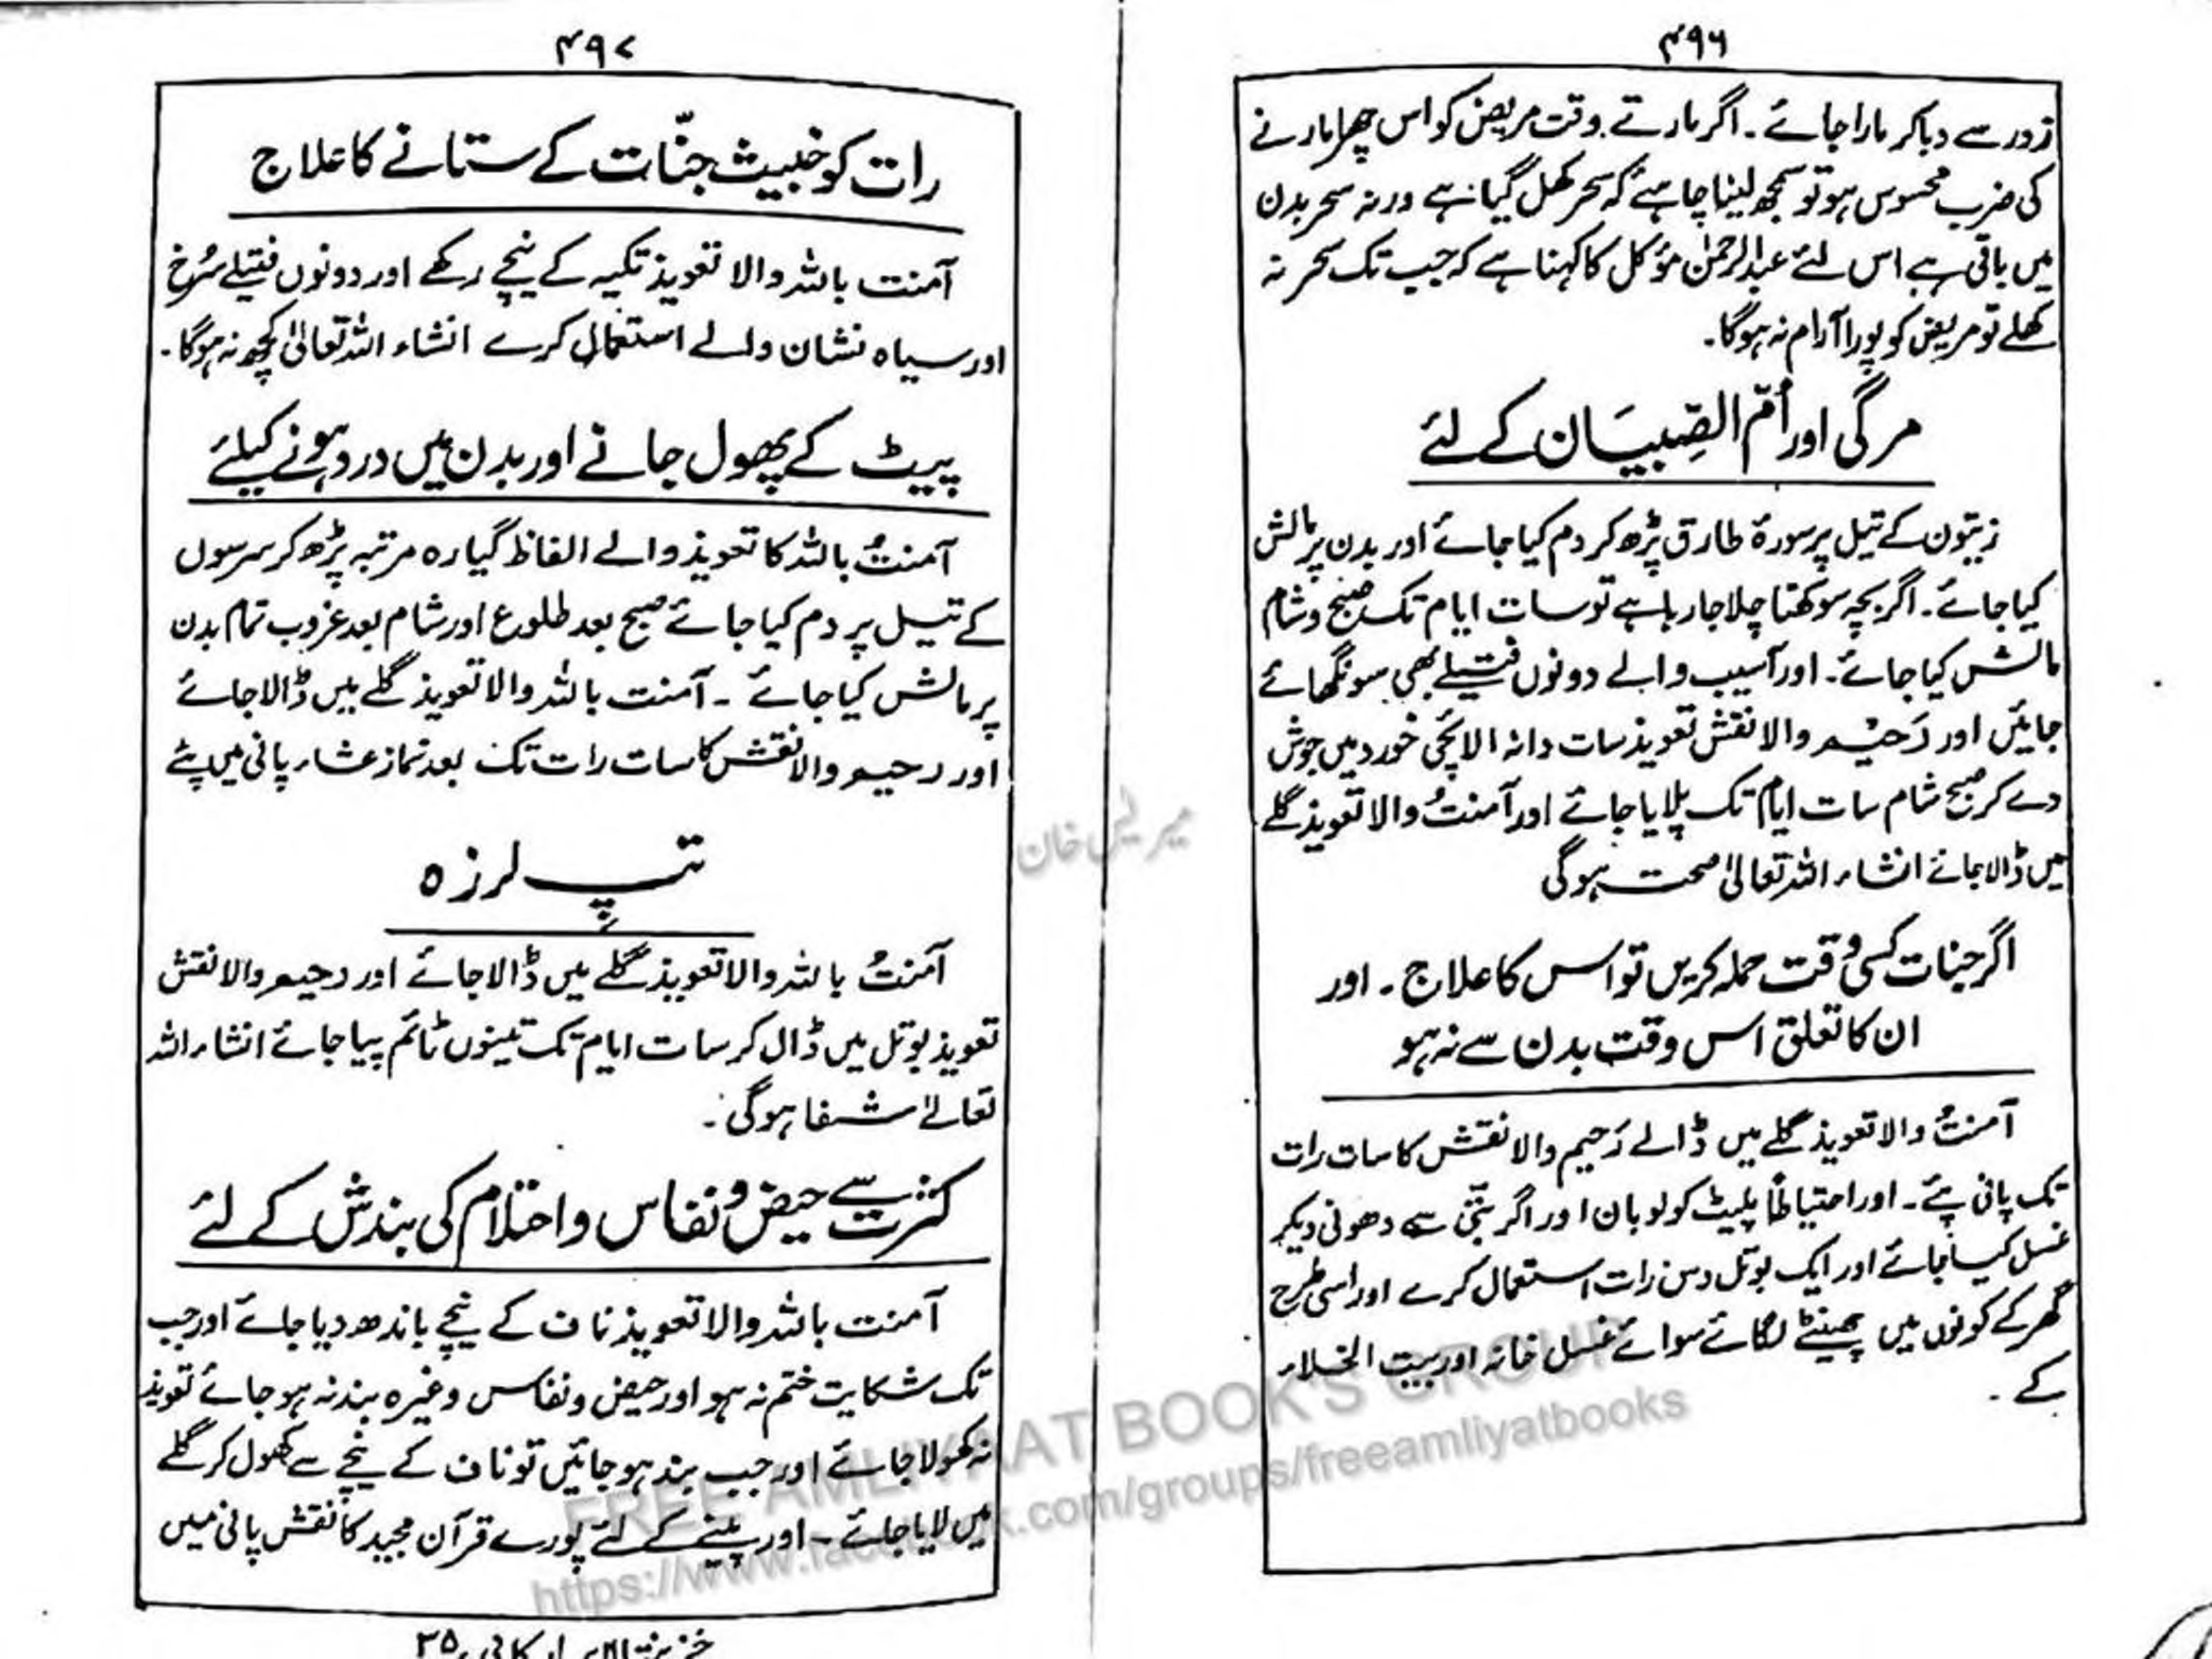 ۴۹۶
زور سے دبا کر مارا جائے۔ اگر مارتے وقت مریض کو اس چھرا مارنے
کی ضرب محسوس ہو تو سمجھ لینا چاہئے کہ سحر کھل گیا ہے ورنہ سحر بدن
میں باقی ہے اس لئے عبدالرحمٰن مؤکل کا کہنا ہے کہ جب تک سحر نہ
کھلے تو مریض کو پورا آرام نہ ہوگا۔
مرگی اور اُمّ الصِّبیَان کے لئے
زیتون کے تیل پر سورۂ طارق پڑھ کر دم کیا جائے اور بدن پر مالش
کیا جائے۔ اگر بچہ سوکھتا چلا جا رہا ہے تو سات ایام تک صبح و شام
مالش کیا جائے۔ اور آسیب والے دونوں فتیلے بھی سونگھائے
جائیں اور رَحیْم والا نقش تعویذ سات دانہ الائچی خورد میں جوش
دے کر صبح شام سات ایام تک پلایا جائے اور آمنتُ والا تعویذ گلے
میں ڈالا جائے انشاء اللہ تعالیٰ صحت ہوگی
اگر جنات کسی وقت حملہ کریں تو اس کا علاج۔ اور
ان کا تعلق اس وقت بدن سے نہ ہو
آمنتُ والا تعویذ گلے میں ڈالے رَحیم والا نقش کا سات رات
تک پانی پئے۔ اور احتیاطاً پلیٹ کو لوبان اور اگر بتّی سے دھونی دیکر
غسل کیا جائے اور ایک بوتل دس رات استعمال کرے اور اسی طرح
گھر کے کونوں میں چھینٹے لگائے سوائے غسل خانہ اور بیت الخلاء
کے۔
۴۹۷
رات کو خبیث جنّات کے ستانے کا علاج
آمنت باللہ والا تعویذ تکیہ کے نیچے رکھے اور دونوں فتیلے سُرخ
اور سیاہ نشان والے استعمال کرے انشاء اللہ تعالیٰ کچھ نہ ہوگا۔
پیٹ کے پھول جانے اور بدن میں درد ہونے کیلئے
آمنتُ باللہ کا تعویذ والے الفاظ گیارہ مرتبہ پڑھ کر سرسوں
کے تیل پر دم کیا جائے صبح بعد طلوع اور شام بعد غروب تمام بدن
پر مالش کیا جائے ۔ آمنت باللہ والا تعویذ گلے میں ڈالا جائے
اور رحیم والا نقش کا سات رات تک بعد نماز عشاء پانی میں پئے
تپِ لرزہ
آمنتُ باللہ والا تعویذ گلے میں ڈالا جائے اور رحیم والا نقش
تعویذ بوتل میں ڈال کر سات ایام تک تینوں ٹائم پیا جائے انشاء اللہ
تعالےٰ شفا ہوگی۔
کثرت سے حیض و نفاس و احتلام کی بندش کے لئے
آمنت باللہ والا تعویذ ناف کے نیچے باندھ دیا جائے اور جب
تک شکایت ختم نہ ہو اور حیض و نفاس وغیرہ بند نہ ہو جائے تعویذ
نہ کھولا جائے اور جب بند ہو جائیں تو ناف کے نیچے سے کھول کر گلے
میں لایا جائے۔ اور پینے کے لئے پورے قرآن مجید کا نقش پانی میں
FREE AMLIYAAT BOOK'S GROUP
https://www.facebook.com/groups/freeamliyatbooks